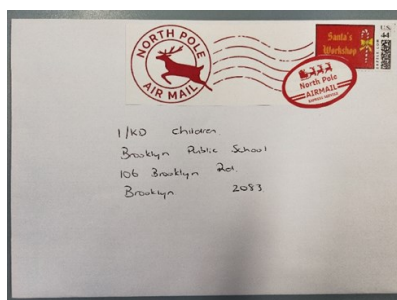 NORTH POLE
AIR MAIL
Santa's
Workshop
U.S.
44
North Pole
AIRMAIL
EXPRESS SERVICE
1/KD Children
Brooklyn Public School
106 Brooklyn Rd.
Brooklyn 2083